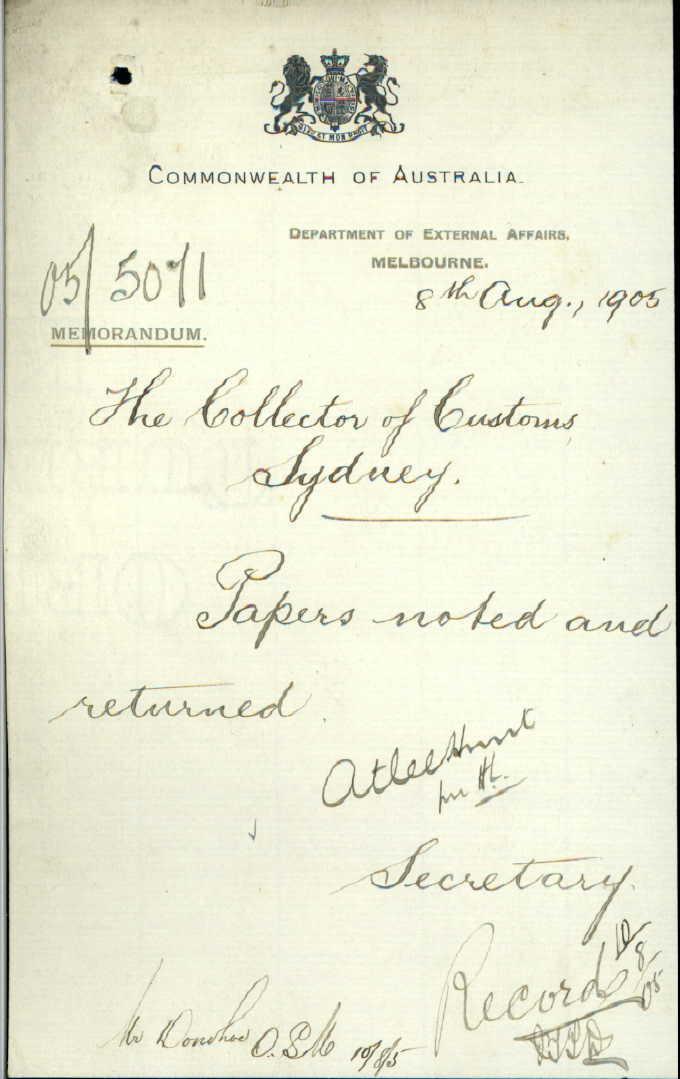 COMMONWEALTH OF AUSTRALIA.
DEPARTMENT OF EXTERNAL AFFAIRS,
MELBOURNE.
05/5071
8th Aug., 1905
MEMORANDUM.
The Collector of Customs,
Sydney.
Papers noted and
returned.
Atlee Hunt
per
Secretary.
Records
8/05
Mr Donohoe 10/8/5